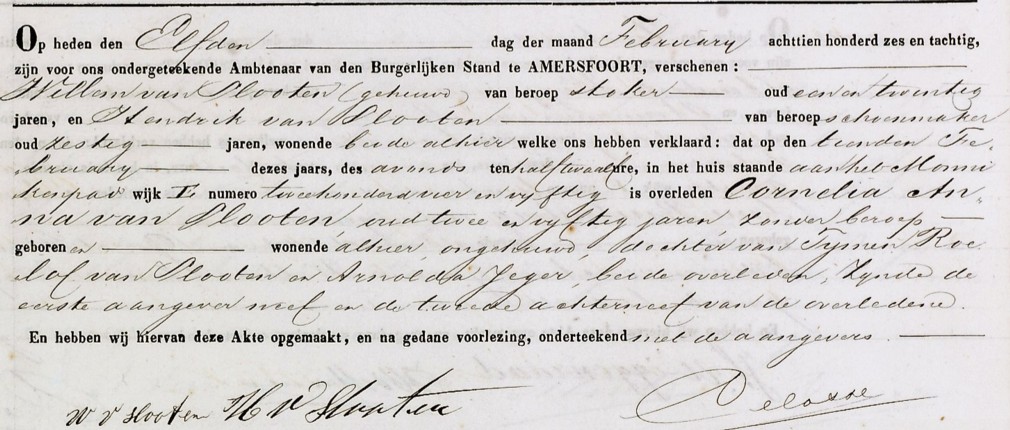 Op heden den Elfden dag der maand February achttien honderd zes en tachtig,
zijn voor ons ondergeteekende Ambtenaar van den Burgerlijken Stand te AMERSFOORT, verschenen:
Willem van Slooten (gehuwd) van beroep stoker oud een en twintig
jaren, en Hendrik van Slooten van beroep schoenmaker
oud zestig jaren, wonende beide alhier welke ons hebben verklaard: dat op den tienden Fe-
bruary dezes jaars, des avonds ten half twaalf ure, in het huis staande aan het Monni
kenpad wijk I numero tweehonderd vier en vyftig is overleden Cornelia An-
na van Slooten oud twee en vyftig jaren zonder beroep
geboren en wonende alhier, ongehuwd, dochter van Tymen Roe
lof van Slooten en Arnolda Jeger, beide overleden, zynde de
eerste aangever neef en de tweede achterneef van de overledene.
En hebben wij hiervan deze Akte opgemaakt, en na gedane voorlezing, onderteekend met de aangevers.
W v Slooten H v Slooten